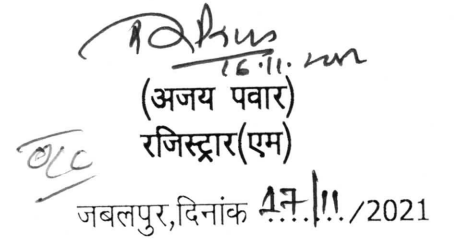 16.11.
(अजय पवार)
रजिस्ट्रार(एम)
जबलपुर,दिनांक 17/11/2021